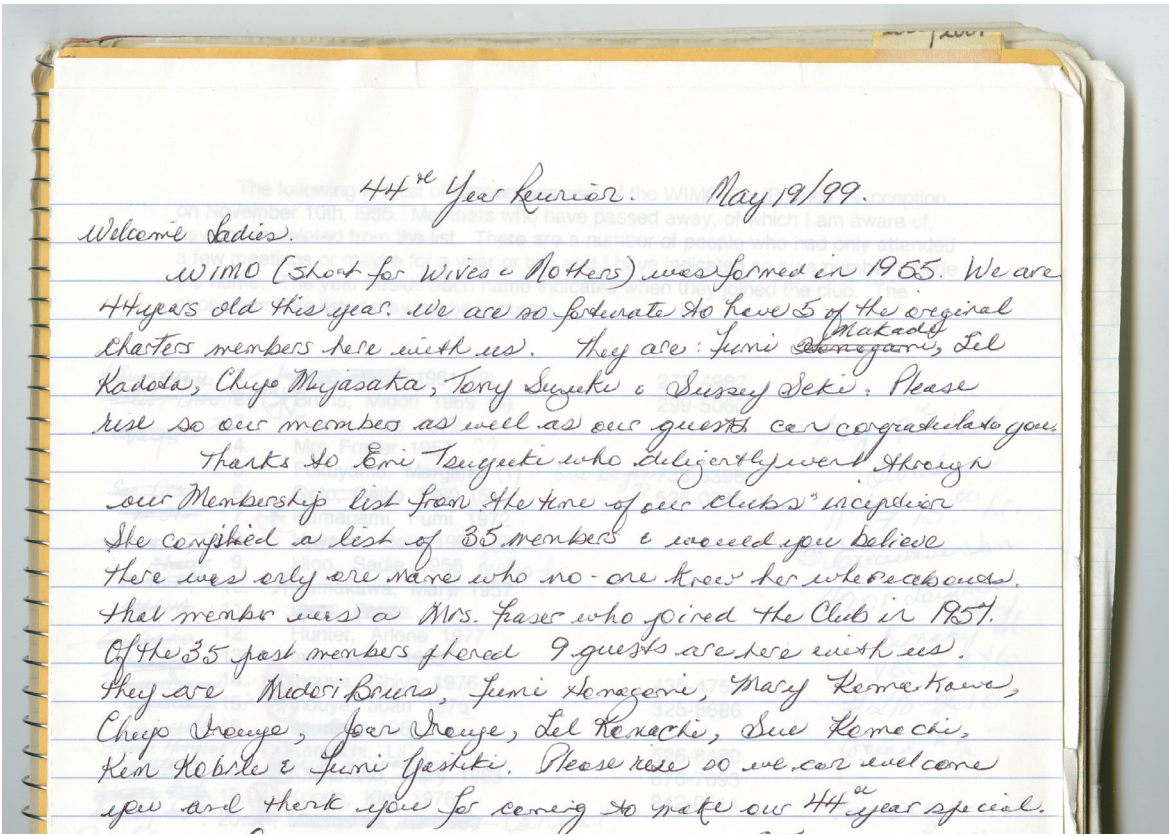 44th Year Reunion. May 19/99.
Welcome Ladies.
WIMO (short for Wives & Mothers) was formed in 1955. We are
44 years old this year. We are so fortunate to have 5 of the original
Makado
charters members here with us. They are: Fumi Hamagami, Lil
Kadota, Chiyo Miyasaka, Tony Suzuki & Sussey Seki. Please
rise so our members as well as our guests can congratulate you.
Thanks to Emi Tsuyuki who diligently went through
our Membership list from the time of our clubs' inception
She compiled a list of 35 members & would you believe
there was only one name who no-one knew her whereabouts.
That member was a Mrs. Fraser who joined the Club in 1957.
Of the 35 past members phoned 9 guests are here with us.
They are Midori Bruns, Fumi Hamagami, Mary Kamakawa,
Chiyo Inouye, Joan Inouye, Lil Kamachi, Sue Kamachi,
Kim Kobrle & Fumi Yoshiki. Please rise so we can welcome
you and thank you for coming to make our 44th year special.